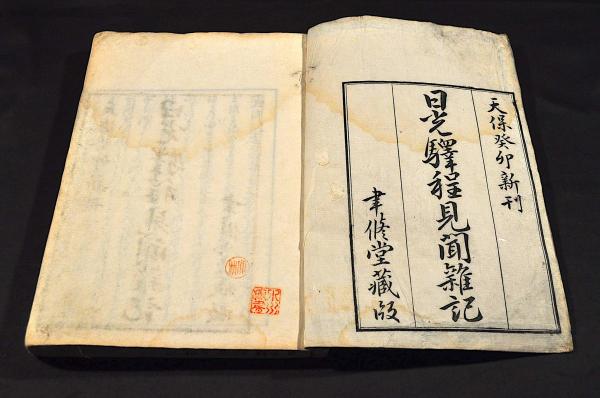 天保癸卯新刊
日光驛程見聞雜記
聿修堂藏版